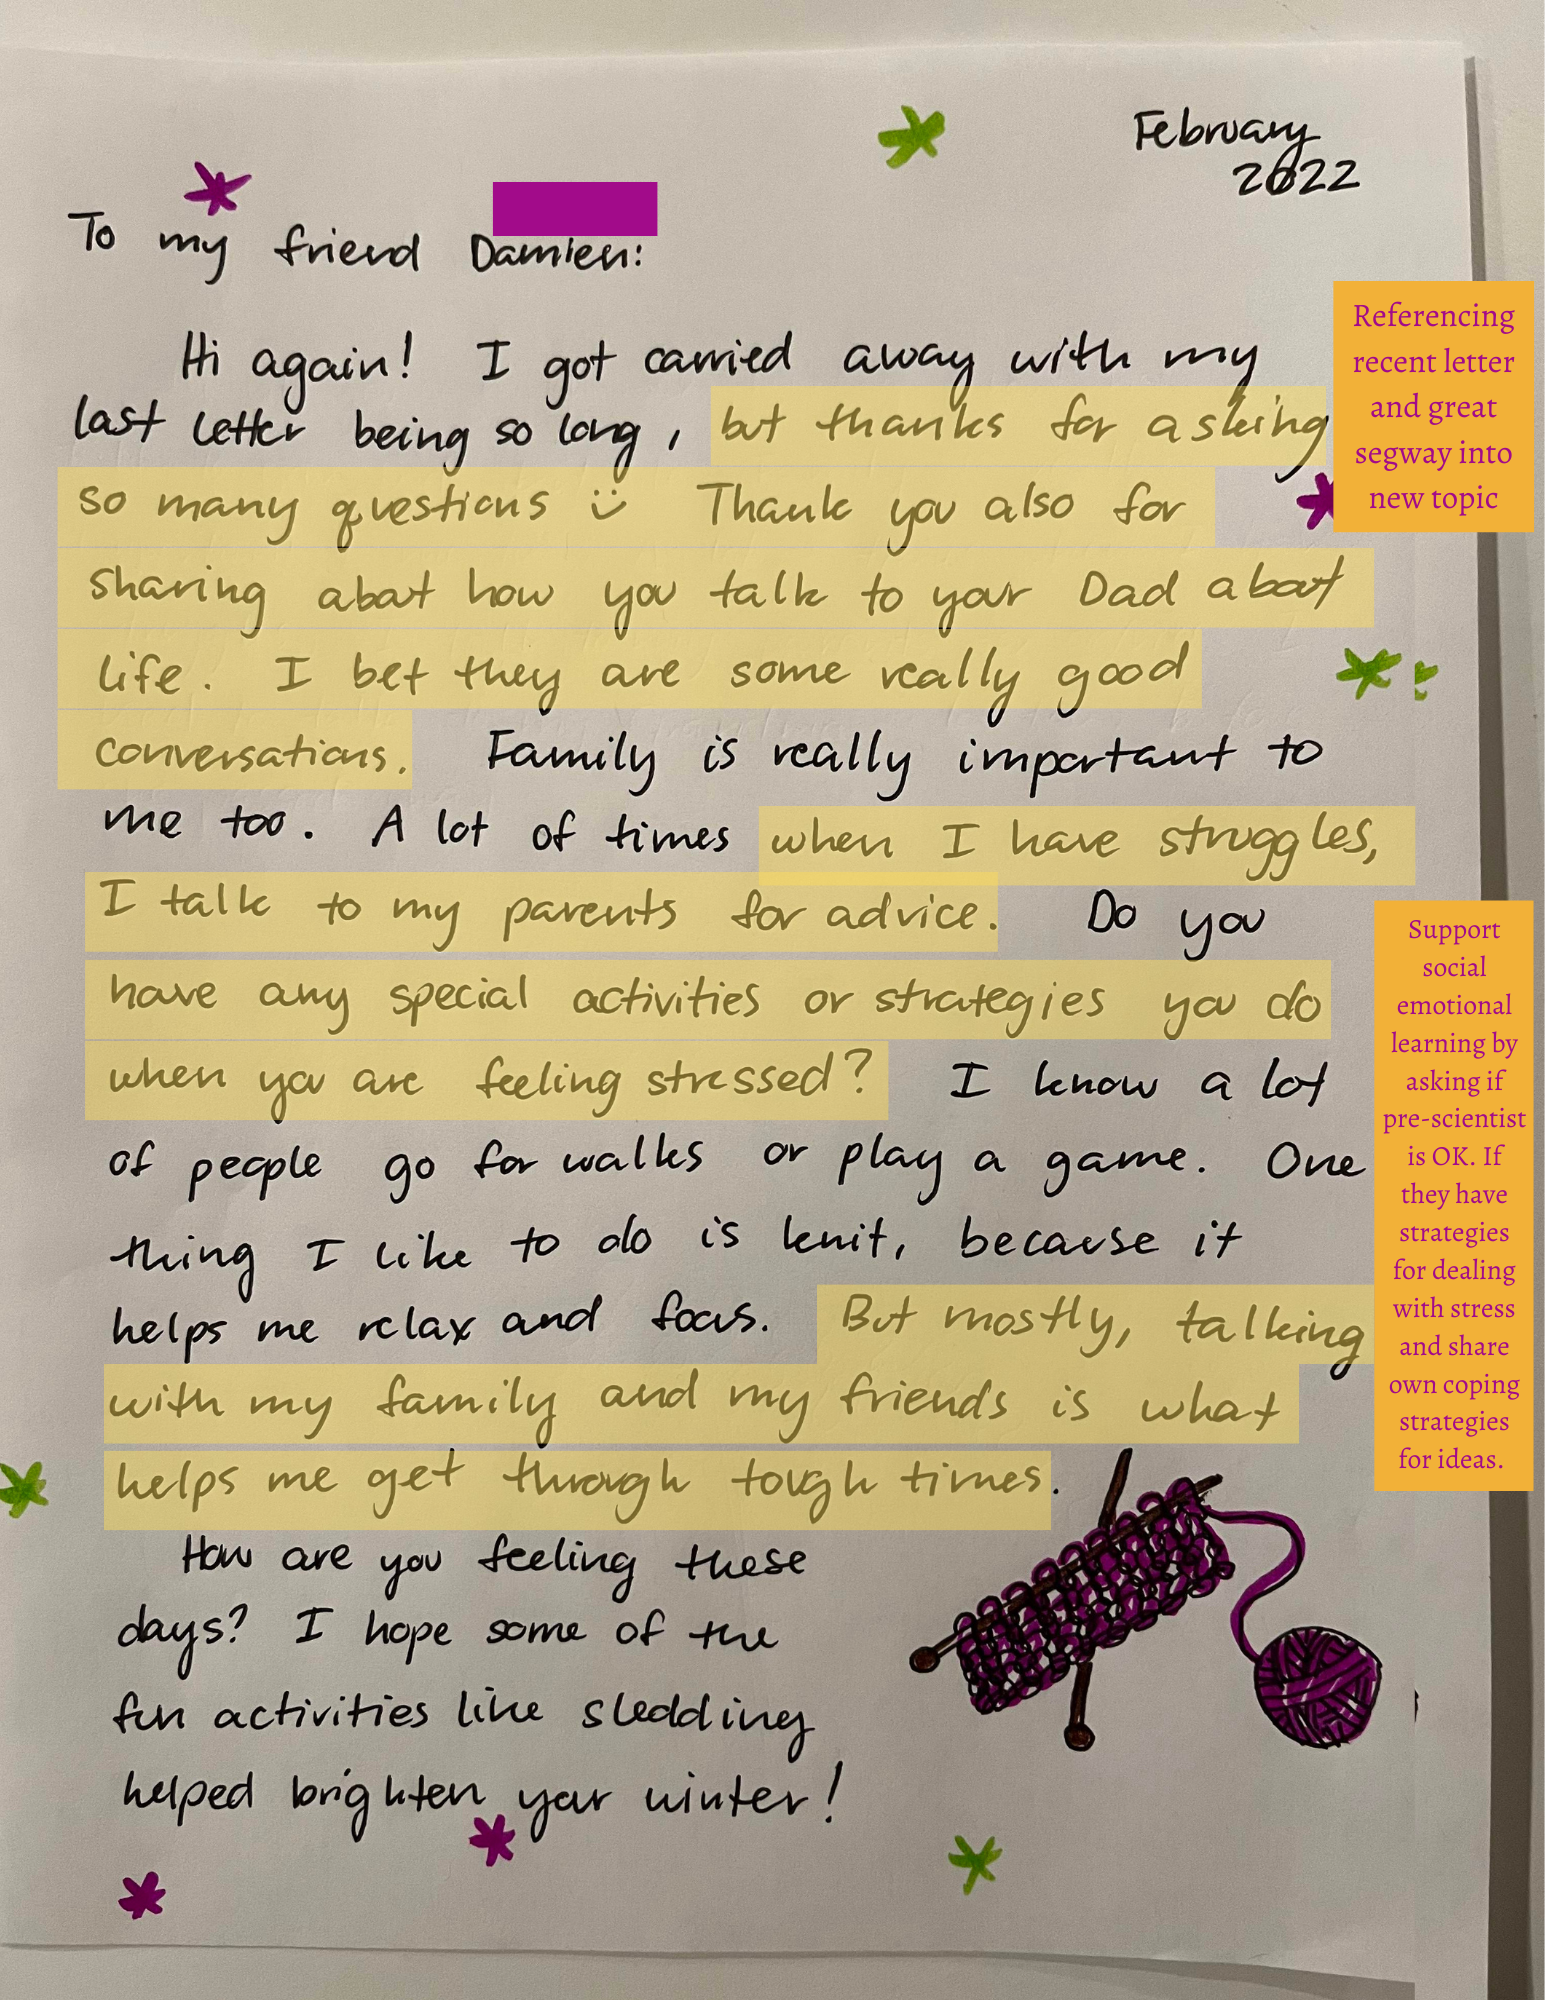 February
2022
To my friend Damien:
Hi again! I got carried away with my
last letter being so long, but thanks for asking
so many questions :) Thank you also for
sharing about how you talk to your Dad about
life. I bet they are some really good
conversations. Family is really important to
me too. A lot of times when I have struggles,
I talk to my parents for advice. Do you
have any special activities or strategies you do
when you are feeling stressed? I know a lot
of people go for walks or play a game. One
thing I like to do is knit, because it
helps me relax and focus. But mostly, talking
with my family and my friends is what
helps me get through tough times.
How are you feeling these
days? I hope some of the
fun activities like sledding
helped brighten your winter!
Referencing
recent letter
and great
segway into
new topic
Support
social
emotional
learning by
asking if
pre-scientist
is OK. If
they have
strategies
for dealing
with stress
and share
own coping
strategies
for ideas.